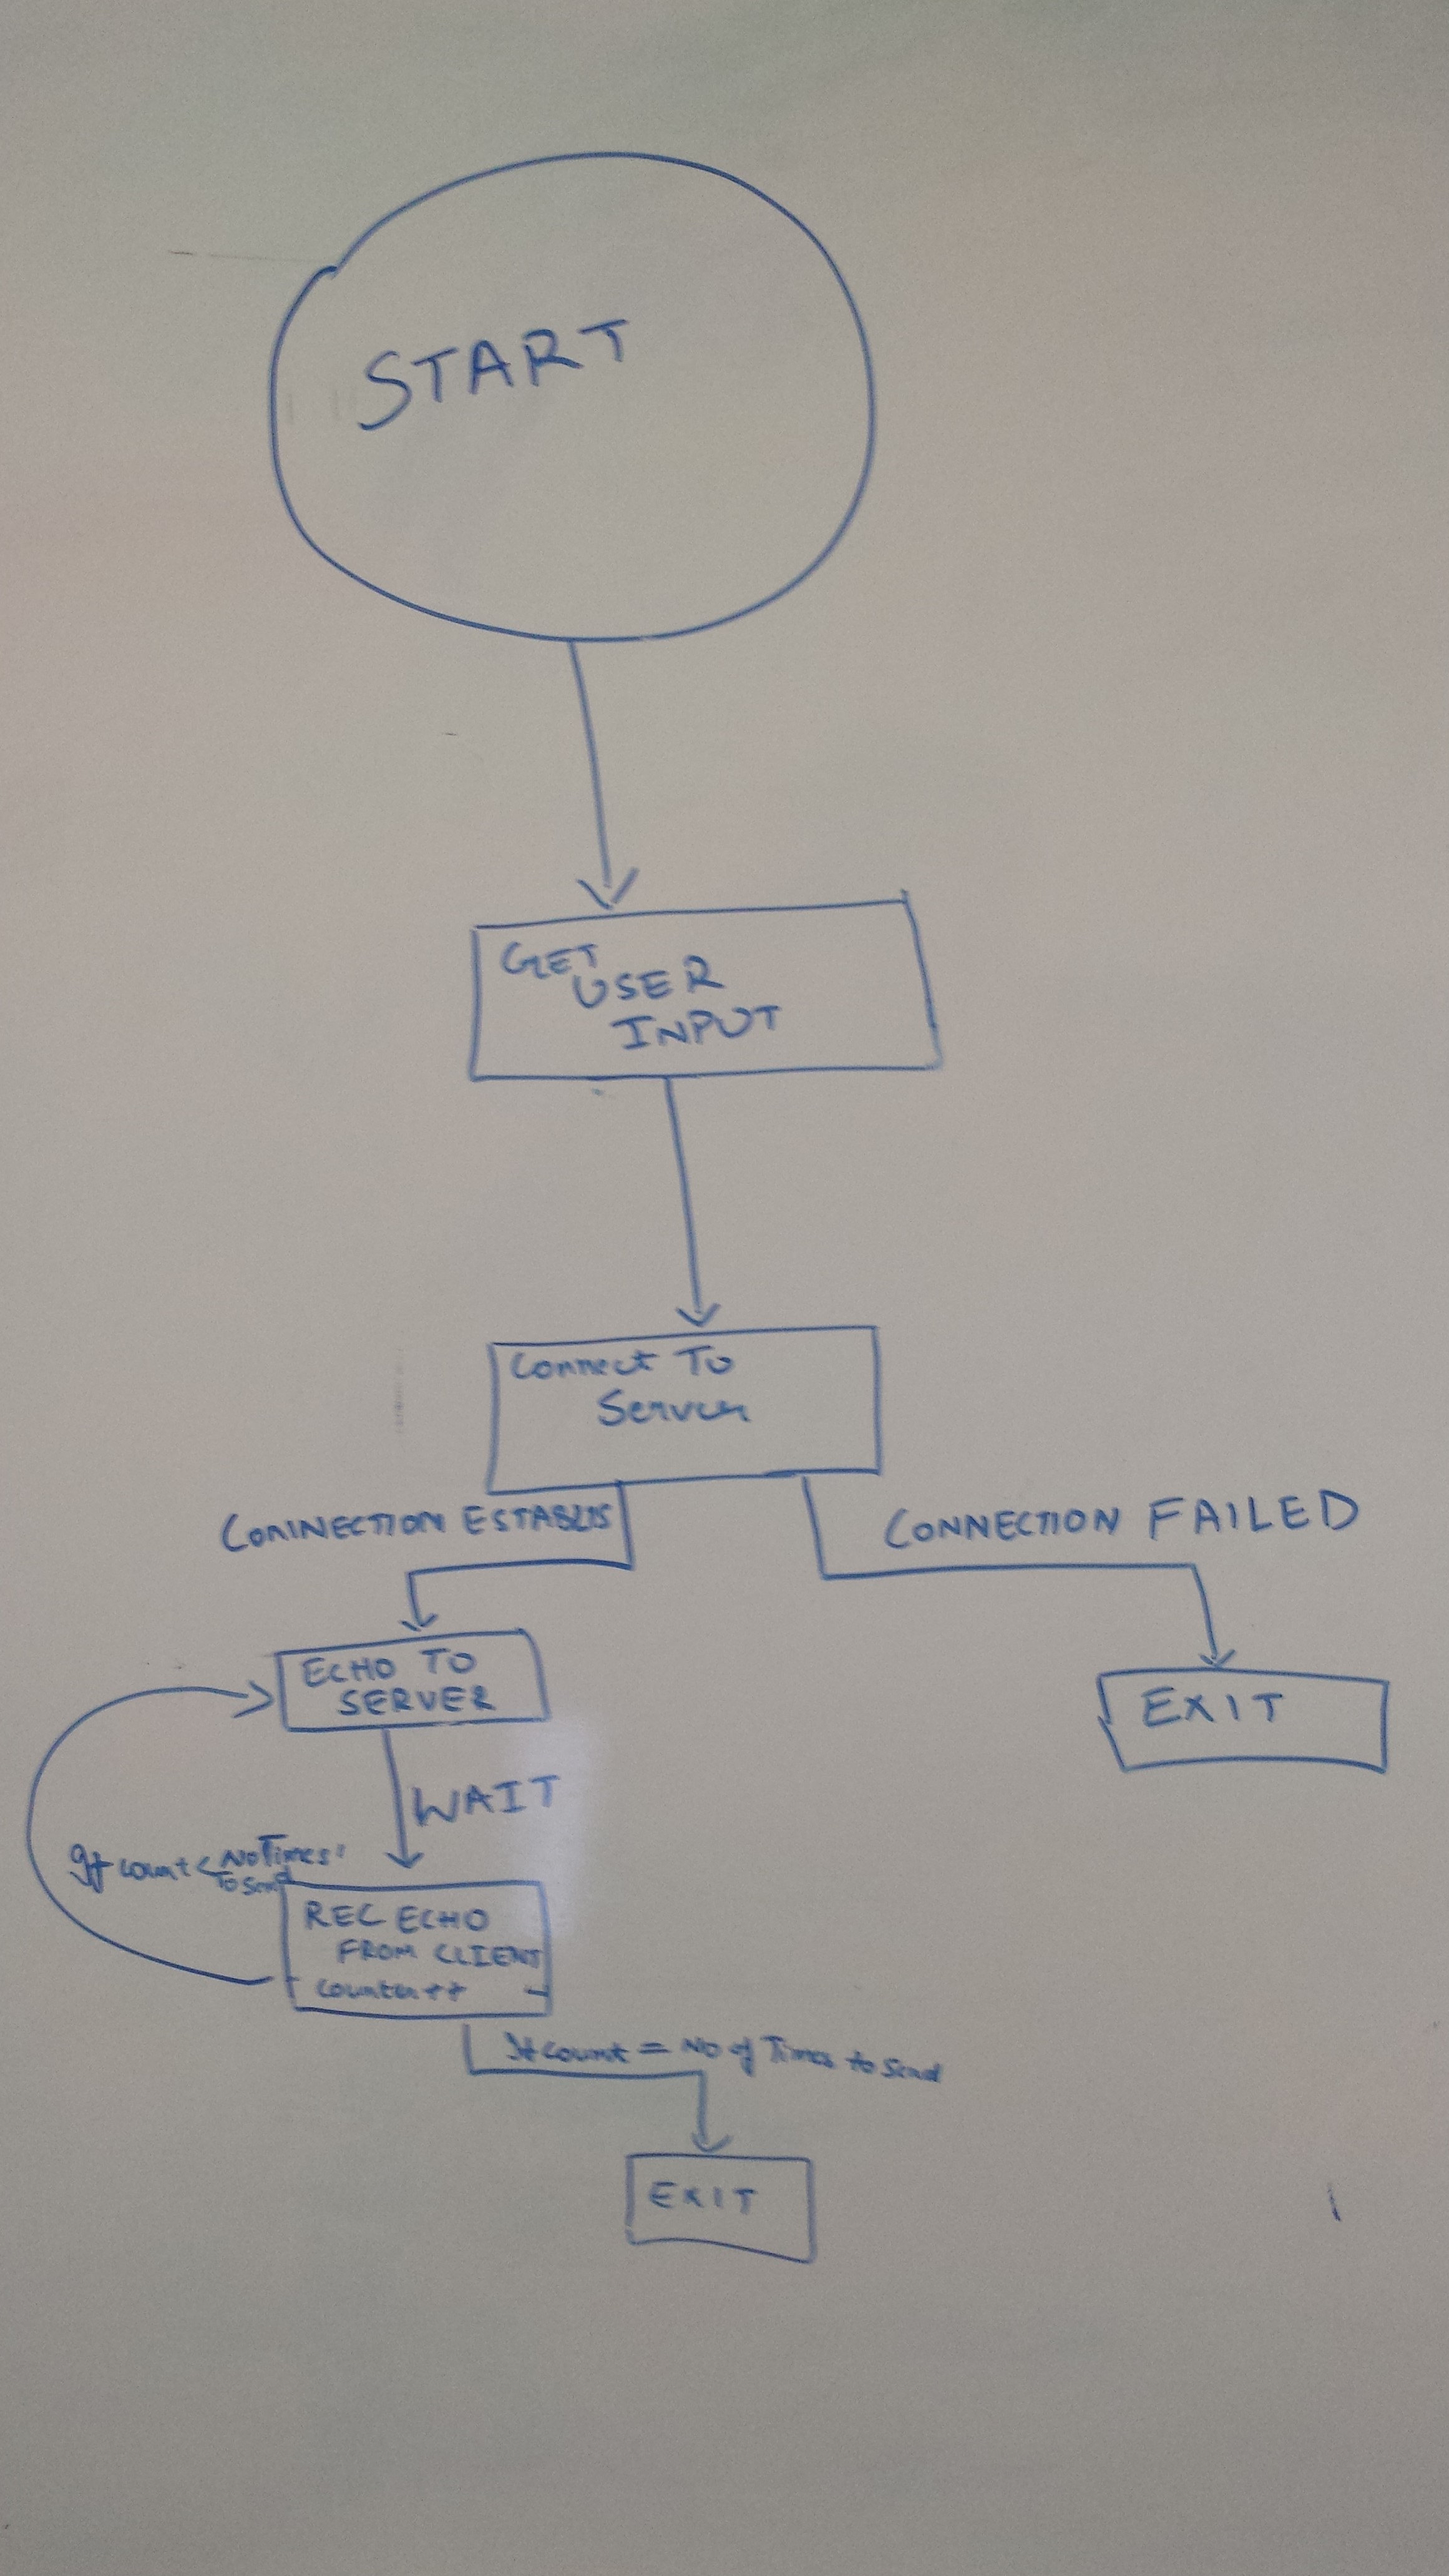 START
GET
USER
INPUT
Connect To
Server
CONNECTION ESTABLIS
CONNECTION FAILED
ECHO TO
SERVER
EXIT
WAIT
If count < No Times
To Send
REC ECHO
FROM CLIENT
counter++
If count = No of Times to send
EXIT